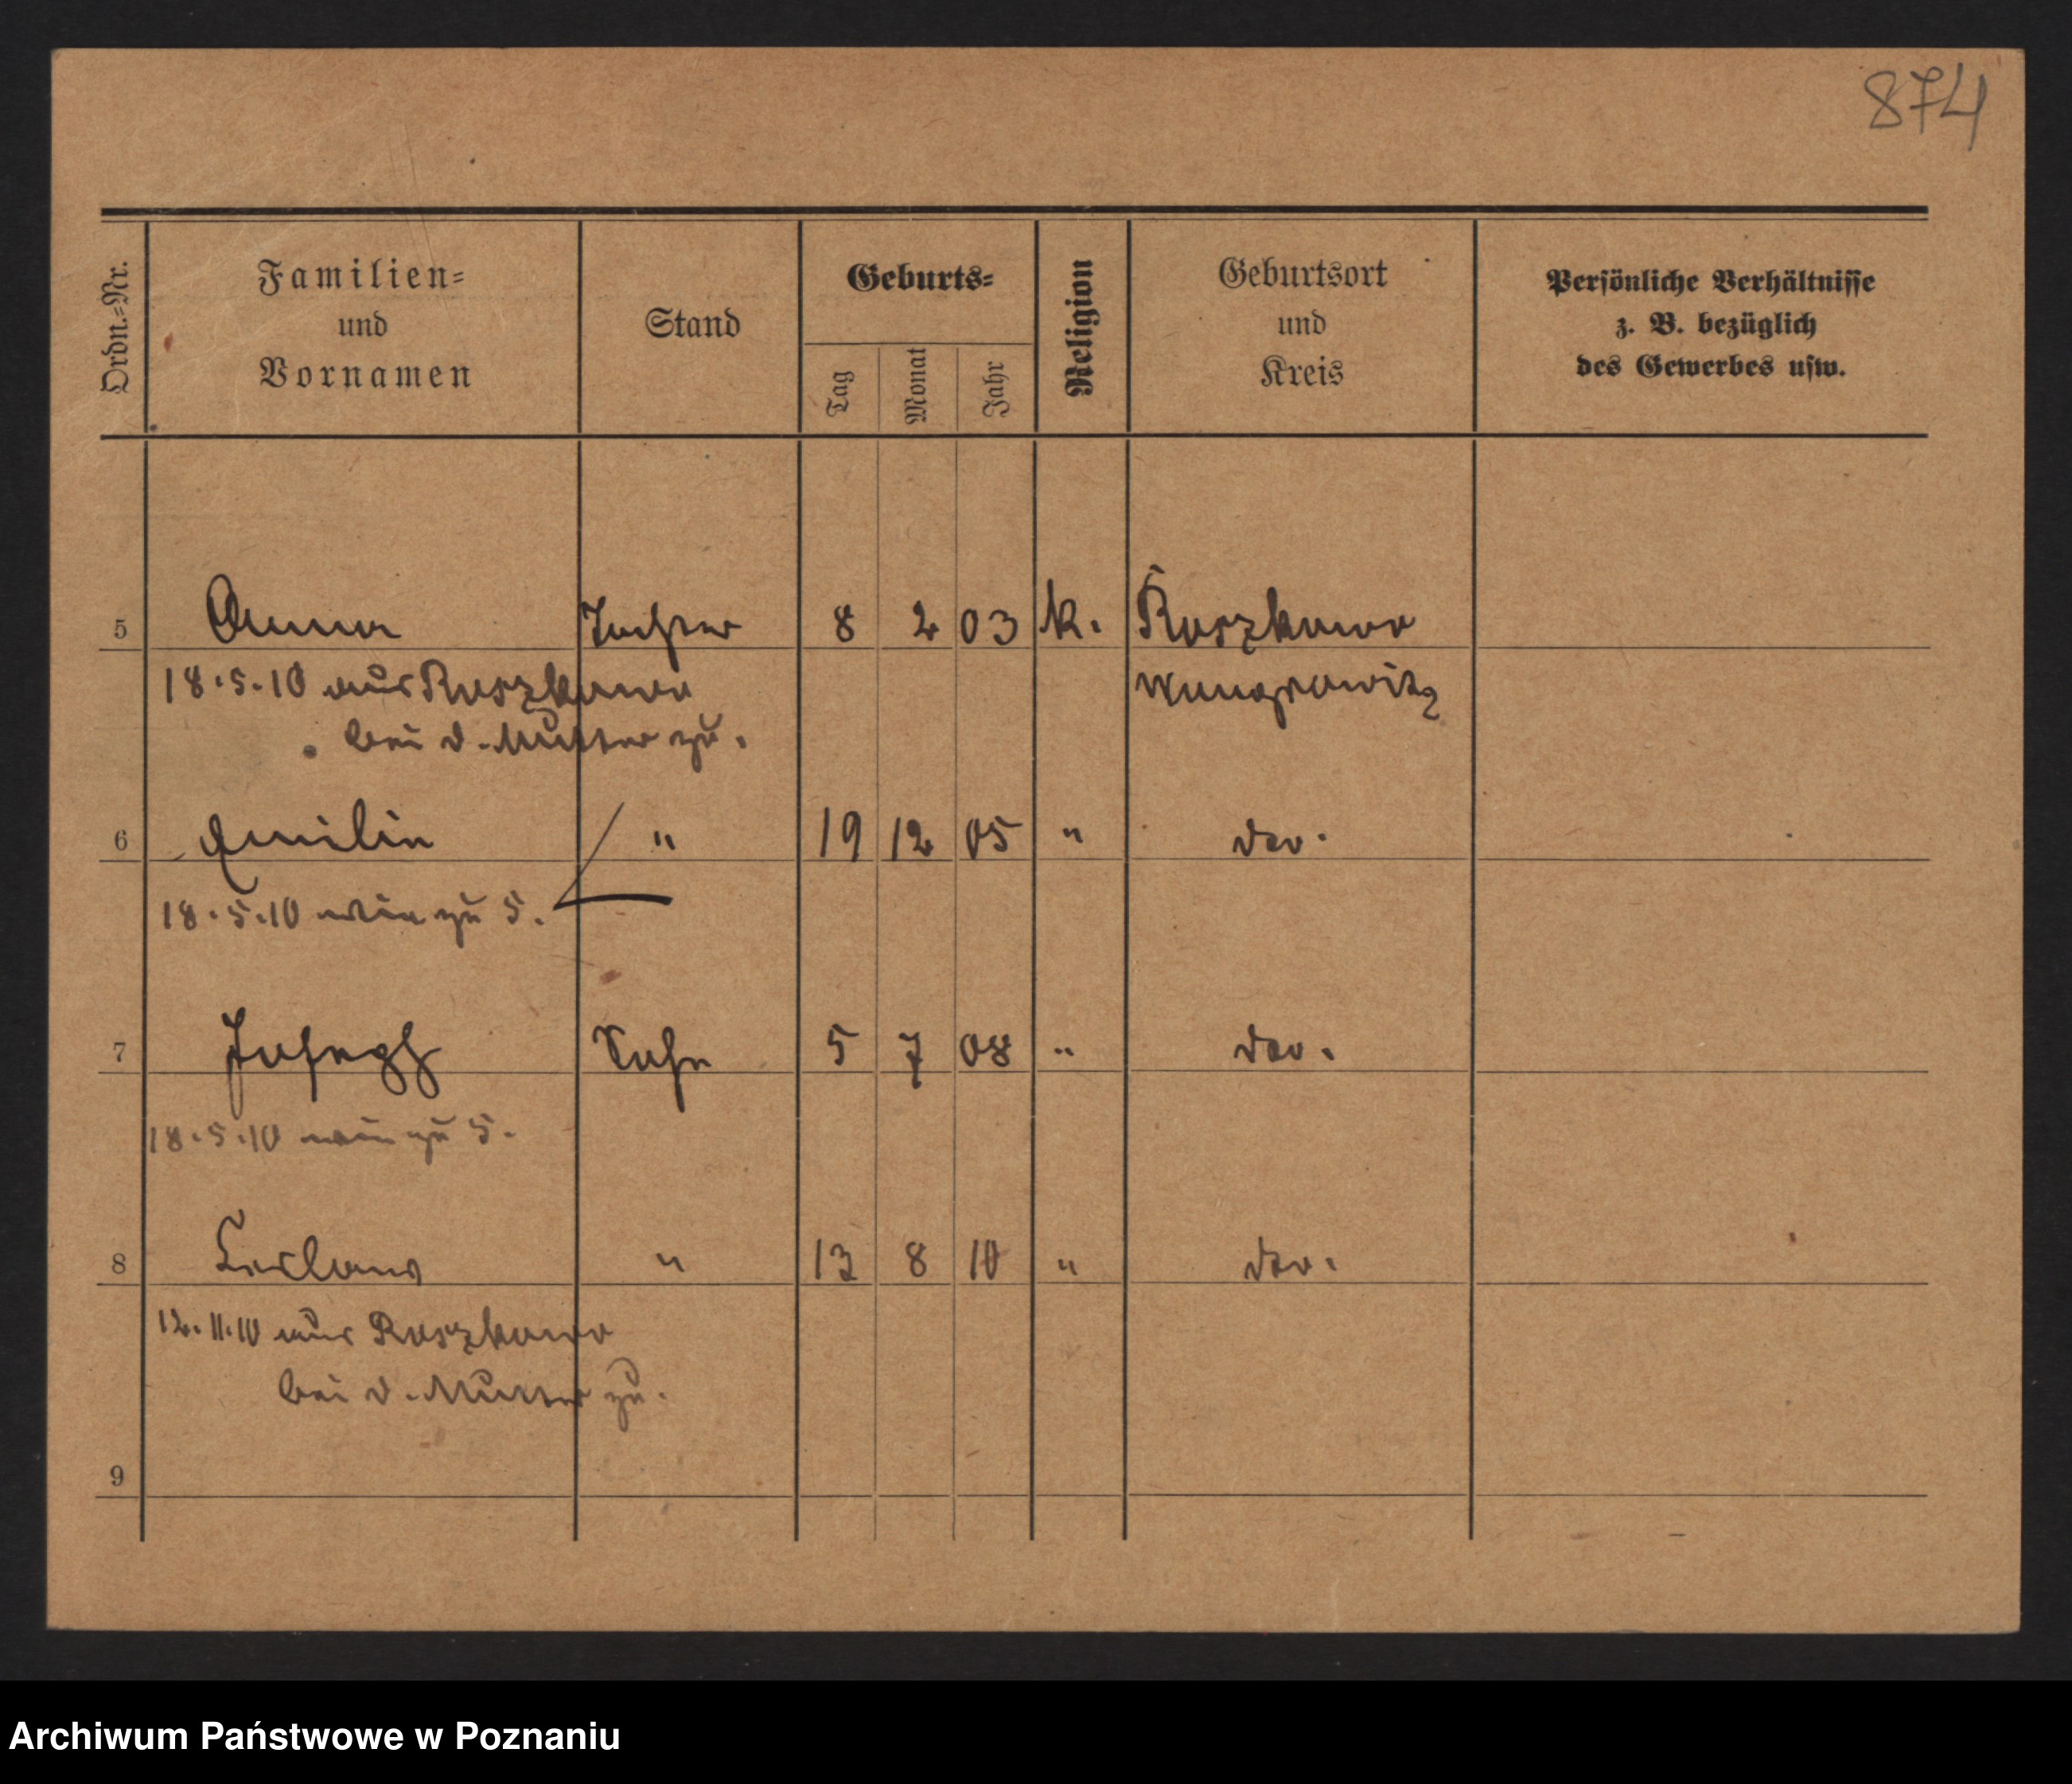 874
Ordn.=Nr.
Familien=
und
Vornamen
Stand
Geburts=
Tag
Monat
Jahr
Religion
Geburtsort
und
Kreis
Persönliche Verhältnisse
z. B. bezüglich
des Gewerbes usw.
5 Anna Tochter 8 2 03 k. Roszkowo
18.5.10 aus Roszkowo Wongrowitz
bei d. Mutter zu.
6 Emilie " 19 12 05 " do.
18.5.10 wie zu 5.
7 Joseph Sohn 5 7 08 " do.
18.5.10 wie zu 5.
8 " 13 8 10 " do.
12.11.10 aus Roszkowo
bei d. Mutter zu.
9
Archiwum Państwowe w Poznaniu